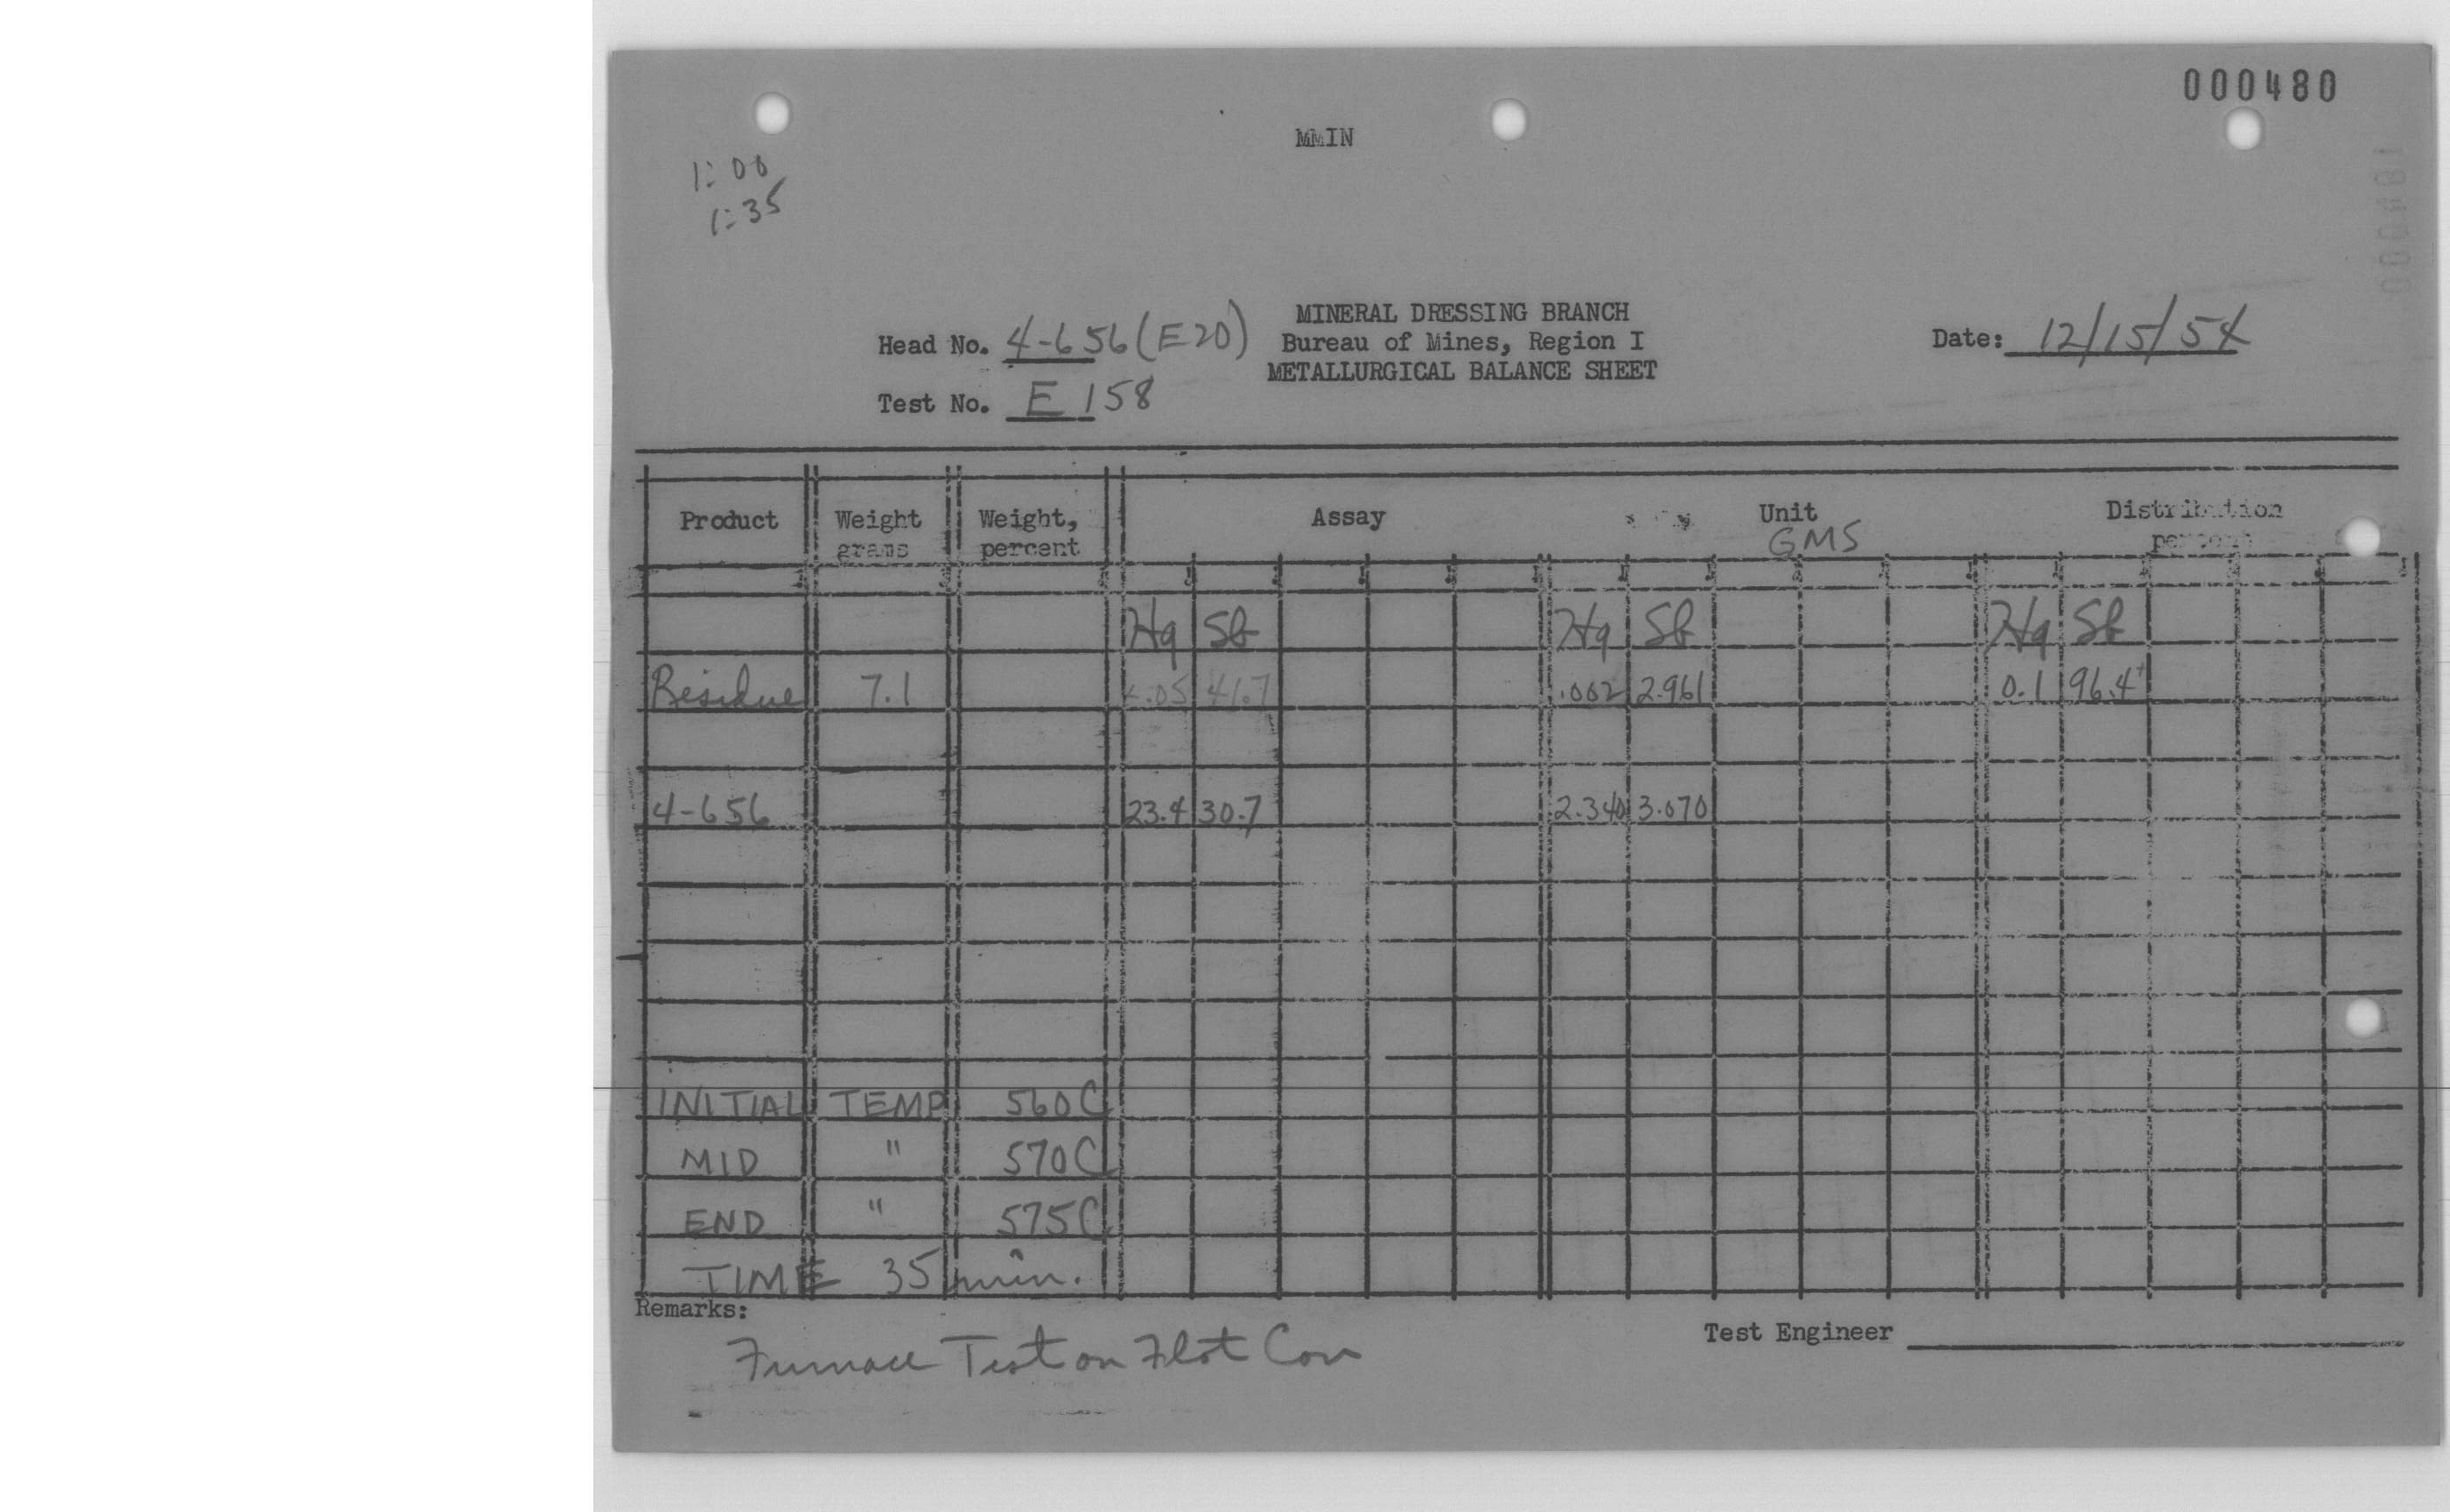 000480
MMIN
1:00
1:35
MINERAL DRESSING BRANCH
Head No. 4-656 (E20) Bureau of Mines, Region I Date: 12/15/54
METALLURGICAL BALANCE SHEET
Test No. E 158
Product Weight grams Weight, percent Assay Unit GMS Distribution percent
Hg Sb Hg Sb Hg Sb
Residue 7.1 <.05 41.7 .002 2.961 0.1 96.4+
4-656 23.4 30.7 2.340 3.070
INITIAL TEMP 560C
MID " 570C
END " 575C
TIME 35 min.
Remarks:
Test Engineer
Furnace Test on Flot Con